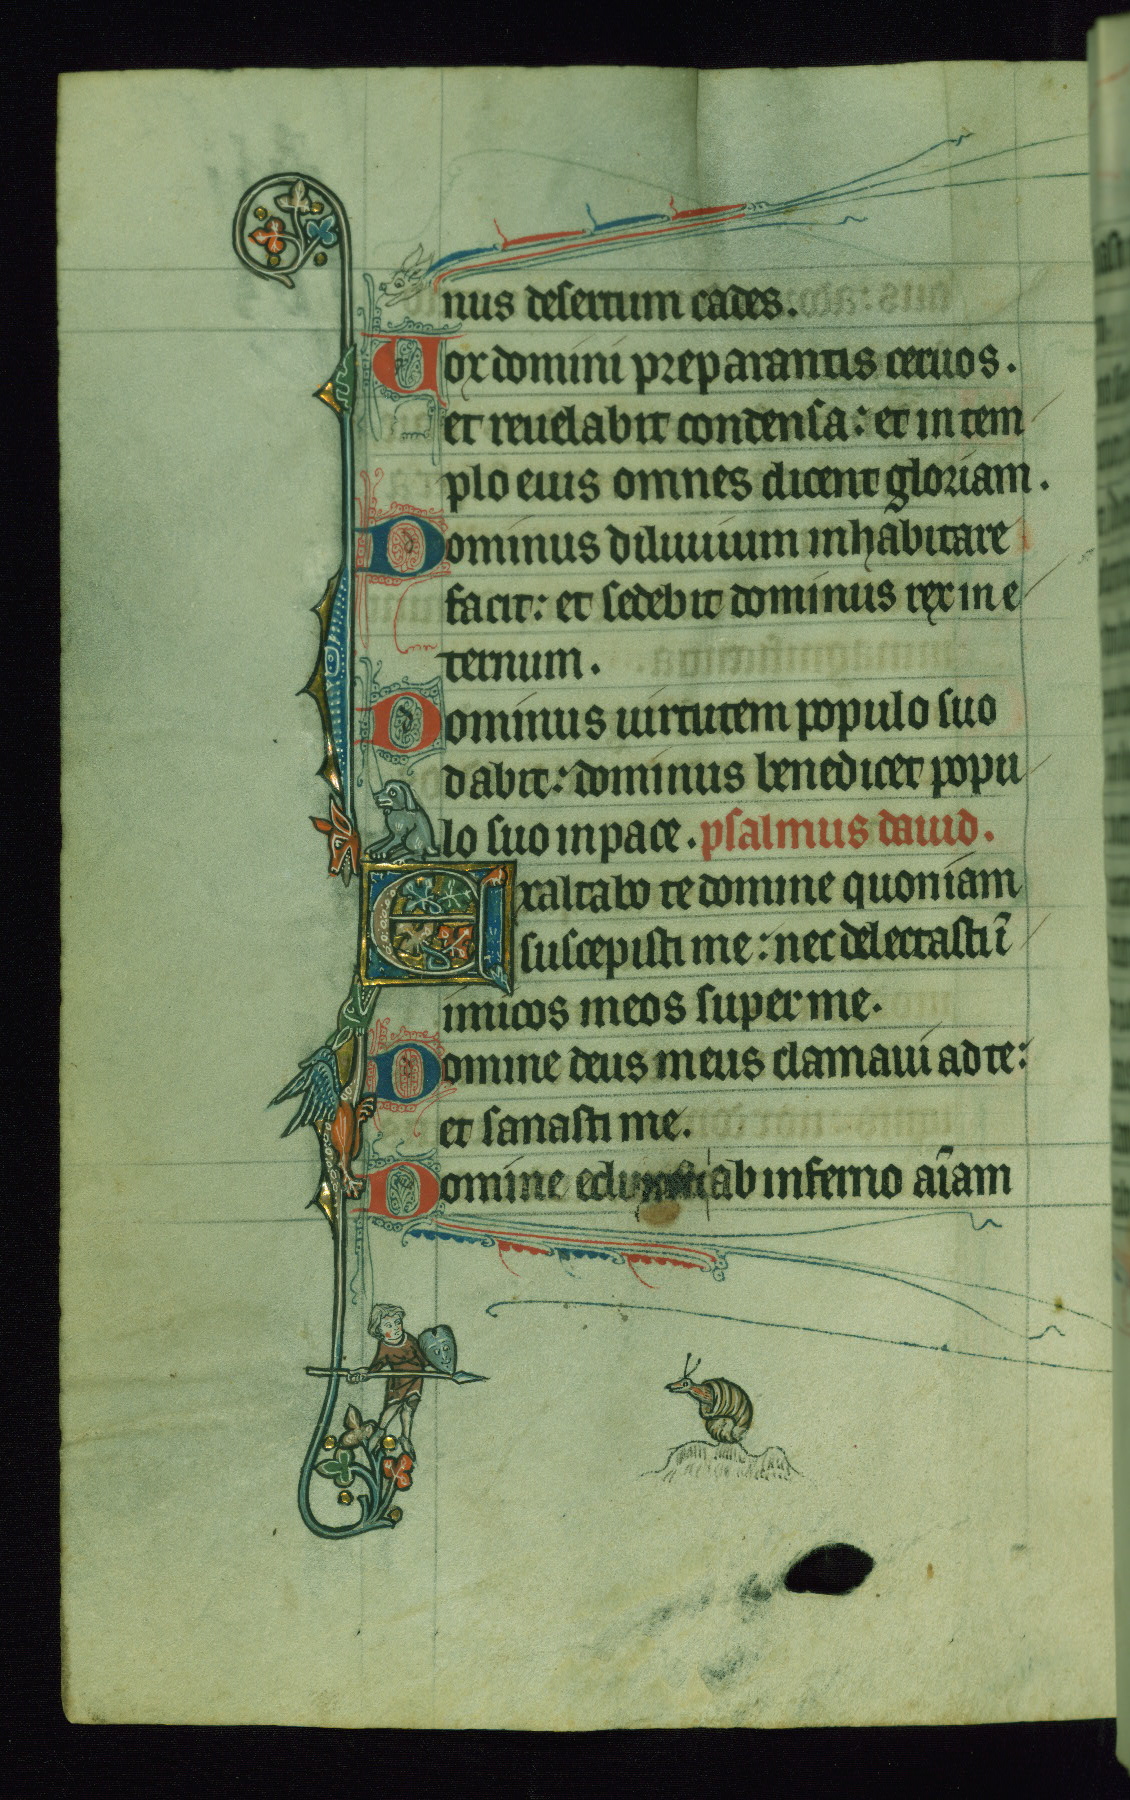 nus desertum cades.
Uox domini preparantis ceruos.
et reuelabit condensa: et in tem
plo eius omnes dicent gloriam.
Dominus diluuium inhabitare
facit: et sedebit dominus rex in e
ternum.
Dominus uirtutem populo suo
dabit: dominus benedicet popu
lo suo in pace. psalmus dauid.
Exaltabo te domine quoniam
suscepisti me: nec delectasti ī
imicos meos super me.
Domine deus meus clamaui ad te:
et sanasti me.
Domine eduxisti ab inferno aīam